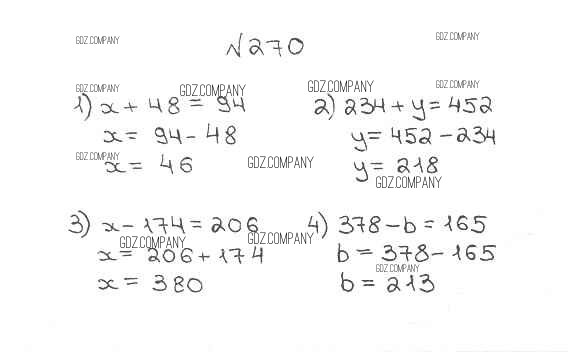 GDZ.COMPANY
GDZ.COMPANY
№270
GDZ.COMPANY
GDZ.COMPANY
GDZ.COMPANY
GDZ.COMPANY
1) x + 48 = 94
x = 94 - 48
GDZ.COMPANY
x = 46
2) 234 + y = 452
y = 452 - 234
GDZ.COMPANY
y = 218
GDZ.COMPANY
3) x - 174 = 206
GDZ.COMPANY
x = 206 + 174
x = 380
4) 378 - b = 165
GDZ.COMPANY
b = 378 - 165
GDZ.COMPANY
b = 213